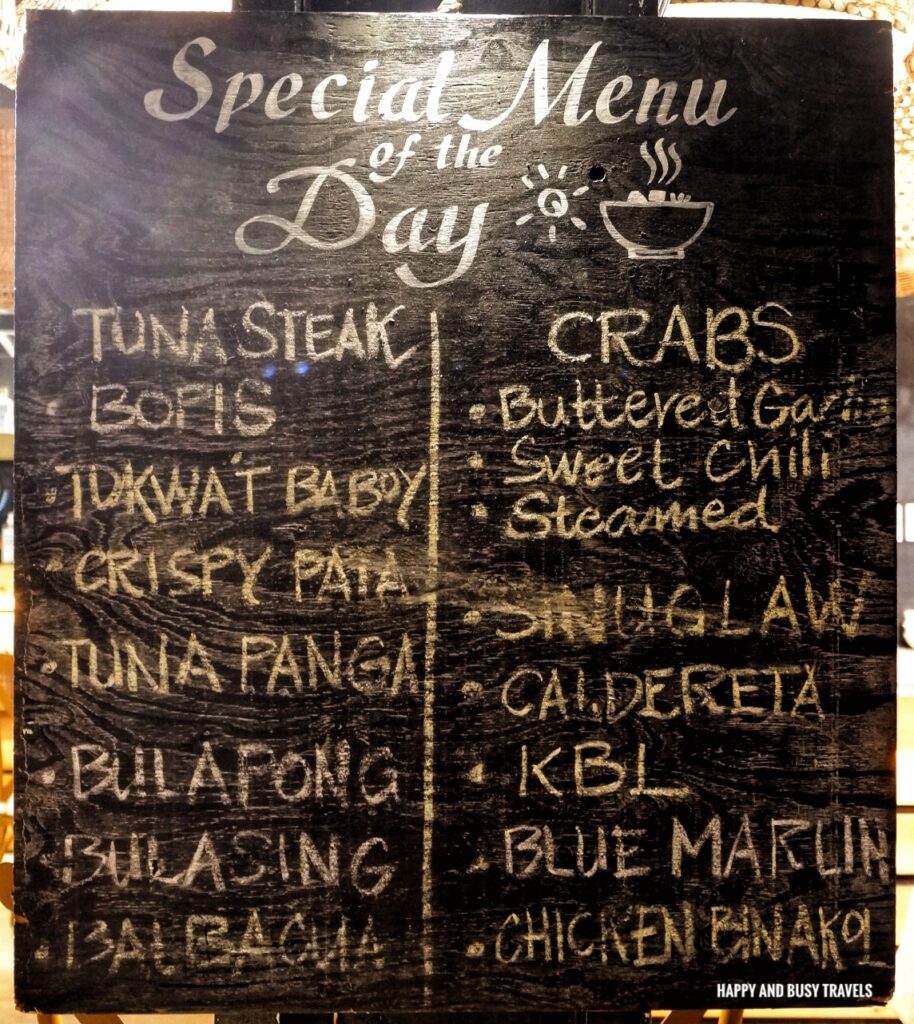 Special Menu
of the
Day
TUNA STEAK
BOPIS
TOKWA'T BABOY
CRISPY PATA
TUNA PANGA
BULAPONG
BULASING
CRABS
Buttered
Sweet Chili
Steamed
SINUGLAW
CALDERETA
KBL
BLUE MARLIN
CHICKEN BINAKOL
HAPPY AND BUSY TRAVELS